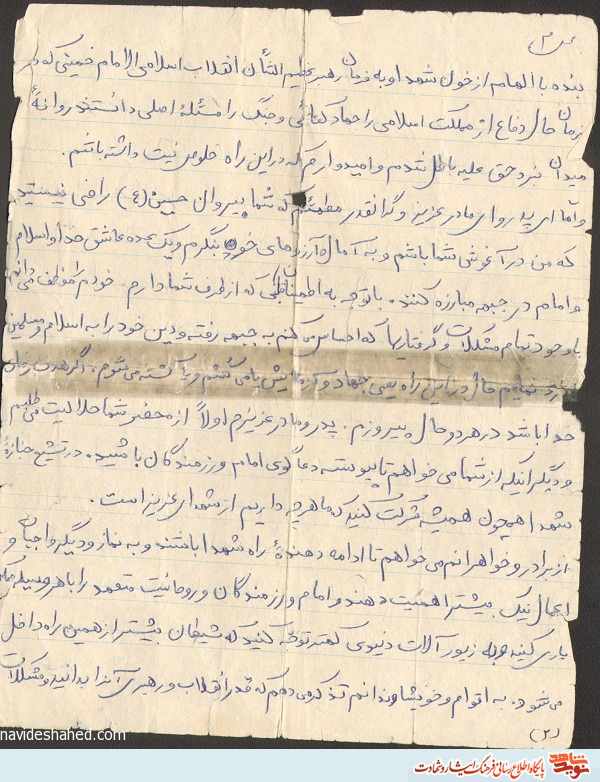 ص ۲
بنده با الهام از خون شهدا و به فرمان رهبر عظیم الشأن انقلاب اسلامی الامام خمینی که در
زمان حال دفاع از مملکت اسلامی را جهاد کفائی و جنگ را مسئلهٔ اصلی دانستند روانهٔ
میدان نبرد حق علیه باطل شدم و امیدوارم که در این راه خلوص نیت داشته باشم.
و اما ای پدر و ای مادر عزیز و گرانقدر مطمئنم که شما پیروان حسین (ع) راضی نیستید
که من در آغوش شما باشم و به آمال و آرزوهای خود بنگرم و یک عده عاشق خدا و اسلام
و امام در جبهه مبارزه کنند. با توجه به اطمینانی که از طرف شما دارم خودم را موظف می دانم
با وجود تمام مشکلات و گرفتاریها که احساس می کنم به جبهه رفته و دین خود را به اسلام و مسلمین
نمایم حال در این راه یعنی جهاد و آزمایش یا می کُشم و یا کشته می شوم. اگر هدف رضای
خدا باشد در هر دو حال پیروزم. پدر و مادر عزیزم اولاً از محضر شما حلالیت می طلبم
و دیگر اینکه از شما می خواهم تا پیوسته دعاگوی امام و رزمندگان باشید. در تشییع جنازهٔ
شهدا همچون همیشه شرکت کنید که ما هر چه داریم از شهدای عزیز است.
از برادر و خواهرانم می خواهم تا ادامه دهندهٔ راه شهدا باشند و به نماز و دیگر واجبات و
اعمال نیک بیشتر اهمیت دهند و امام و رزمندگان و روحانیت متعهد را با هر وسیله ممکن
یاری کنید و به زیور آلات دنیوی کمتر توجه کنید که شیطان بیشتر از همین راه داخل
می شود. به اقوام و خویشاوندانم تذکر می دهم که قدر انقلاب و رهبری آنرا بدانید و مشکلات
(۲)
navideshahed.com
نوید شاهد
پایگاه اطلاع رسانی فرهنگ ایثار و شهادت